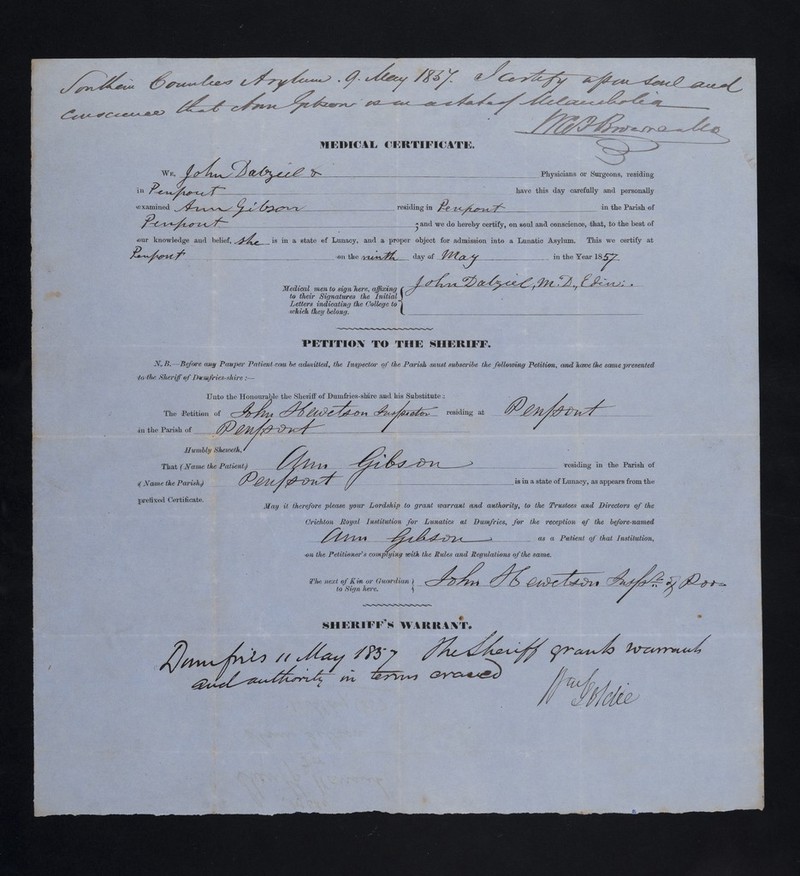 Southern Counties Asylum. 9. May 1857. I certify upon soul and
conscience that Ann Gibson is in a state of Melancholia
MEDICAL CERTIFICATE.
WE, John Dalziel & Physicians or Surgeons, residing
in Penpont have this day carefully and personally
examined Ann Gibson residing in Penpont in the Parish of
Penpont ; and we do hereby certify, on soul and conscience, that, to the best of
our knowledge and belief, she is in a state of Lunacy, and a proper object for admission into a Lunatic Asylum. This we certify at
Penpont on the ninth day of May in the Year 1857.
Medical men to sign here, affixing
to their Signatures the Initial
Letters indicating the College to
which they belong.
John Dalziel, M.D., Edin:.
PETITION TO THE SHERIFF.
N.B.—Before any Pauper Patient can be admitted, the Inspector of the Parish must subscribe the following Petition, and have the same presented
to the Sheriff of Dumfries-shire:—
Unto the Honourable the Sheriff of Dumfries-shire and his Substitute;
The Petition of John Hewetson Inspector residing at Penpont
in the Parish of Penpont
Humbly Sheweth,
That (Name the Patient) Ann Gibson residing in the Parish of
(Name the Parish) Penpont is in a state of Lunacy, as appears from the
prefixed Certificate.
May it therefore please your Lordship to grant warrant and authority, to the Trustees and Directors of the
Crichton Royal Institution for Lunatics at Dumfries, for the reception of the before-named
Ann Gibson as a Patient of that Institution,
on the Petitioner's complying with the Rules and Regulations of the same.
The next of Kin or Guardian
to Sign here.
John Hewetson Inspr. of Poor
SHERIFF'S WARRANT.
Dumfries 11 May 1857 The Sheriff grants warrant
and authority in terms craved
Wm Goldie